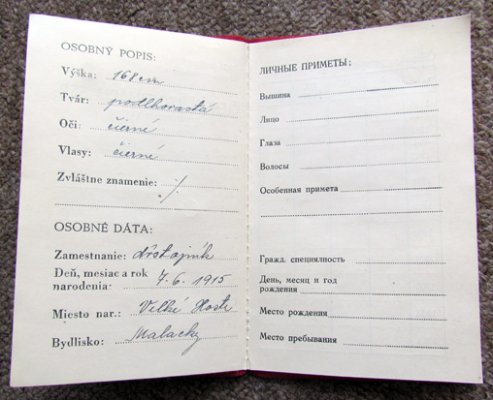 OSOBNÝ POPIS:
Výška: 168 cm
Tvár: podlhovastá
Oči: čierné
Vlasy: čierné
Zvláštne znamenie: ·/.
OSOBNÉ DÁTA:
Zamestnanie: dôstojník
Deň, mesiac a rok
narodenia: 7. 6. 1915
Miesto nar.: Veľké Hoste
Bydlisko: Malacky
ЛИЧНЫЕ ПРИМЕТЫ:
Вышина
Лицо
Глаза
Волосы
Особенная примета
Гражд. специялность
День, месяц и год
рождения
Место рождения
Место пребывания